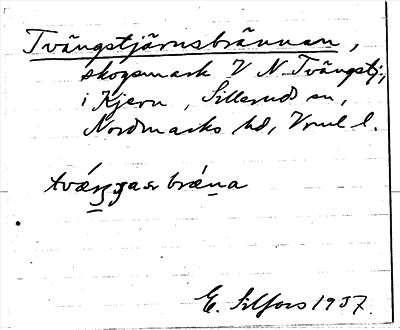 Tvängstjärnsbrännan,
skogsmark V N. Tvängstj.,
i Kjern, Sillerud sn,
Nordmarks hd, Vrml l.
bräna
E. Silfors 1937.